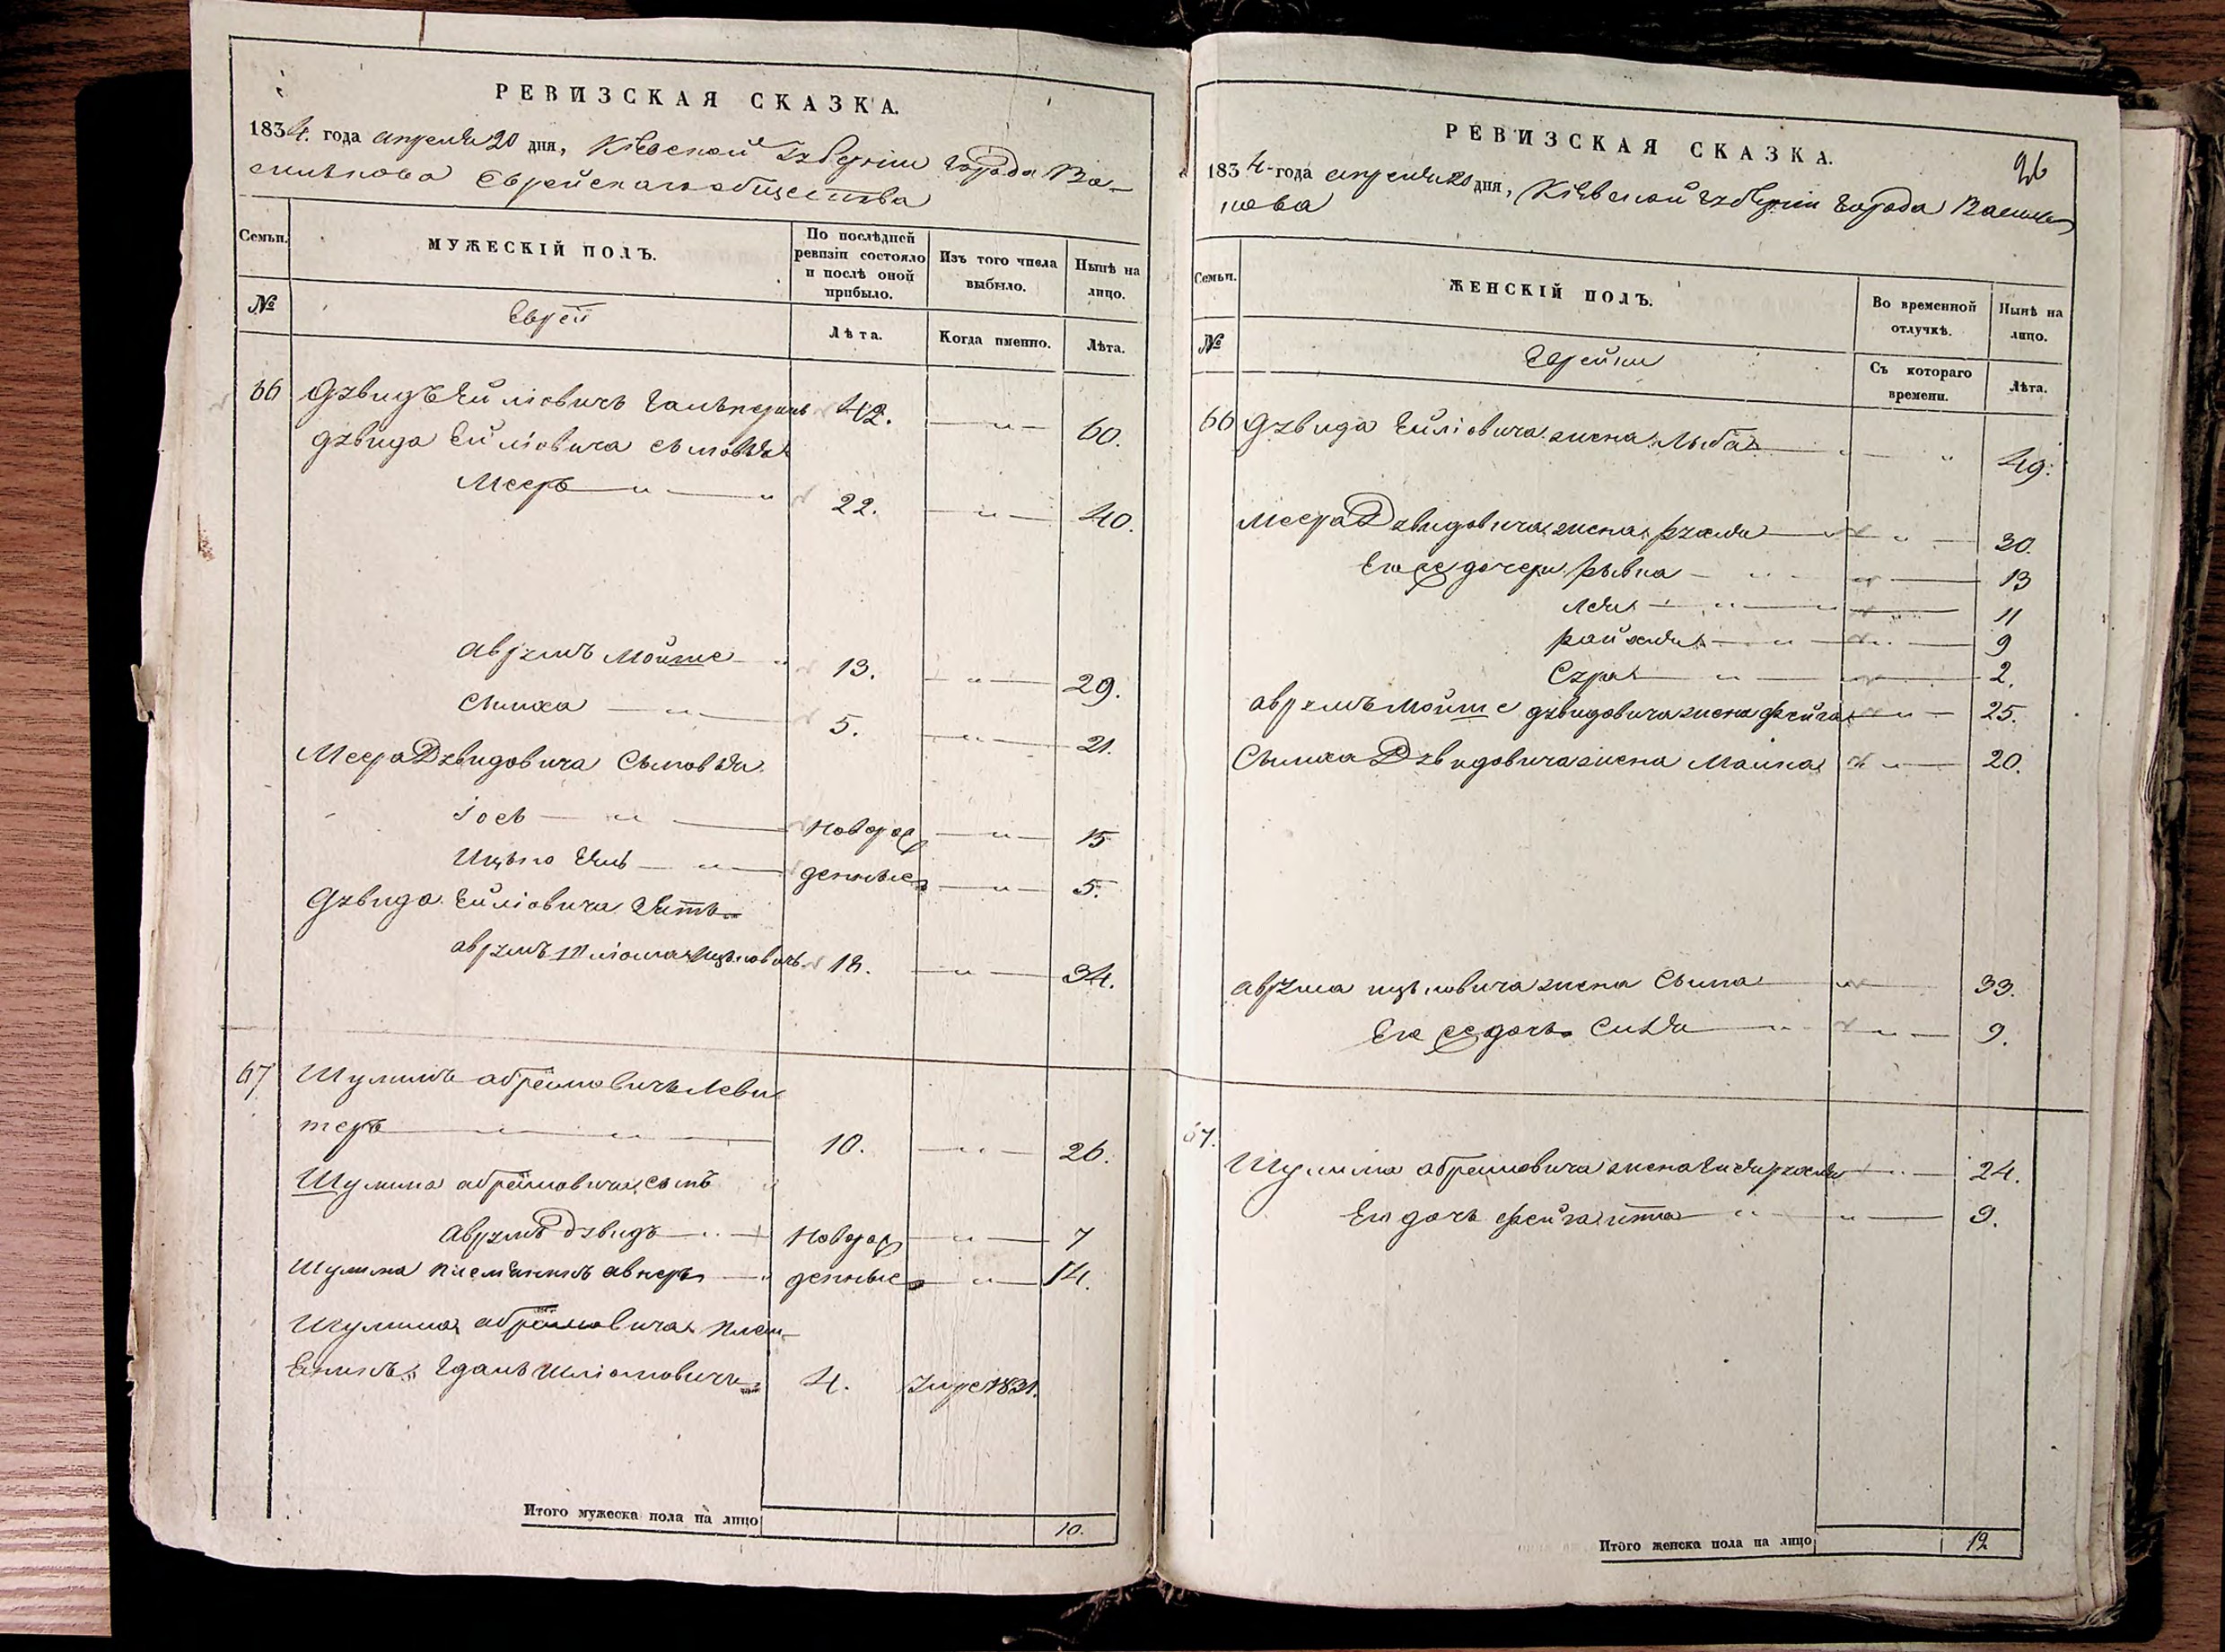 РЕВИЗСКАЯ СКАЗКА.
1834. года апреля 20 дня, Кіевской Губерніи города Ва-
силькова Еврейскаго общества
Семьи.
МУЖЕСКІЙ ПОЛЪ.
По послѣдней ревизіи состояло и послѣ оной прибыло.
Изъ того числа выбыло.
Нынѣ на лицо.
№
Еврей
Лѣта.
Когда именно.
Лѣта.
66 Дувидъ Ейліовичъ 42. 60.
Дувида Ейліовича сыновья
Мееръ 22. 40.
Аврумъ Мойше 13. 29.
Сымха 5. 21.
Меера Дувидовича Сыновья
Іось новорож 15
Ицько денные 5.
Дувида Ейліовича Зять
Аврумъ Шліома Ицковичъ 18. 34.
67 Шулимъ Абрамовичъ Леви
теръ 10. 26.
Шулима Абрамовича сынъ
Аврумъ Дувидъ новорож 7
Шулима племянникъ Авнеръ денные 14.
Шулима Абрамовича плем-
янникъ Шліомовичъ 4. Умре 1831.
Итого мужеска пола на лицо 10.
РЕВИЗСКАЯ СКАЗКА.
26
1834 года апреля 20 дня, Кіевской губерніи города Василь
кова
Семьи.
ЖЕНСКІЙ ПОЛЪ.
Во временной отлучкѣ.
Нынѣ на лицо.
№
Еврейки
Съ котораго времени.
Лѣта.
66 Дувида Ейліовича жена Лыба 49.
Меера Дувидовича жена Рухля 30.
Его ее дочери Рывка 13
Лея 11
Райхля 9
Сура 2.
Аврумъ Мойше Дувидовича жена Фейга 25.
Сымха Дувидовича жена Малка 20.
Аврума Ицковича жена Сыма 33.
Его ее дочь 9.
67.
Шулима Абрамовича жена 24.
Его дочь Фейга Итта 9.
Итого женска пола на лицо 12